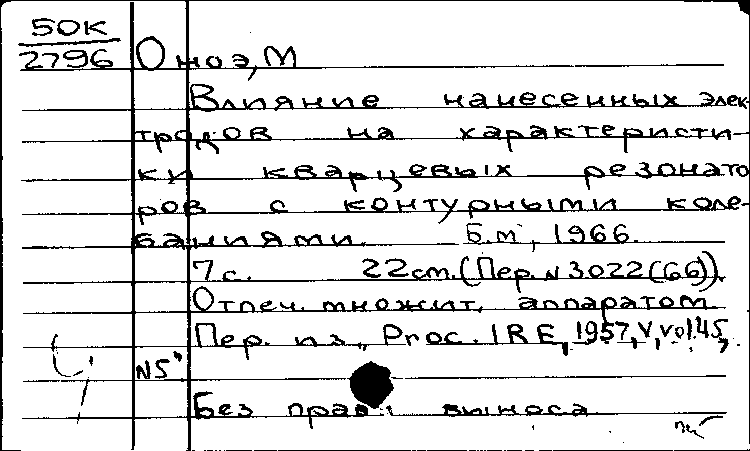 50К
2796
Оноэ, М
Влияние нанесенных элек-
тродов на характеристи-
ки кварцевых резонато
ров с контурными коле-
баниями. Б.м., 1966.
7 с. 22 cm. (Пер. N 3022 (66)).
Отпеч. множит. аппаратом.
Пер. из „Proc. IRE, 1957, V, vol.45,
N5"
Без права выноса